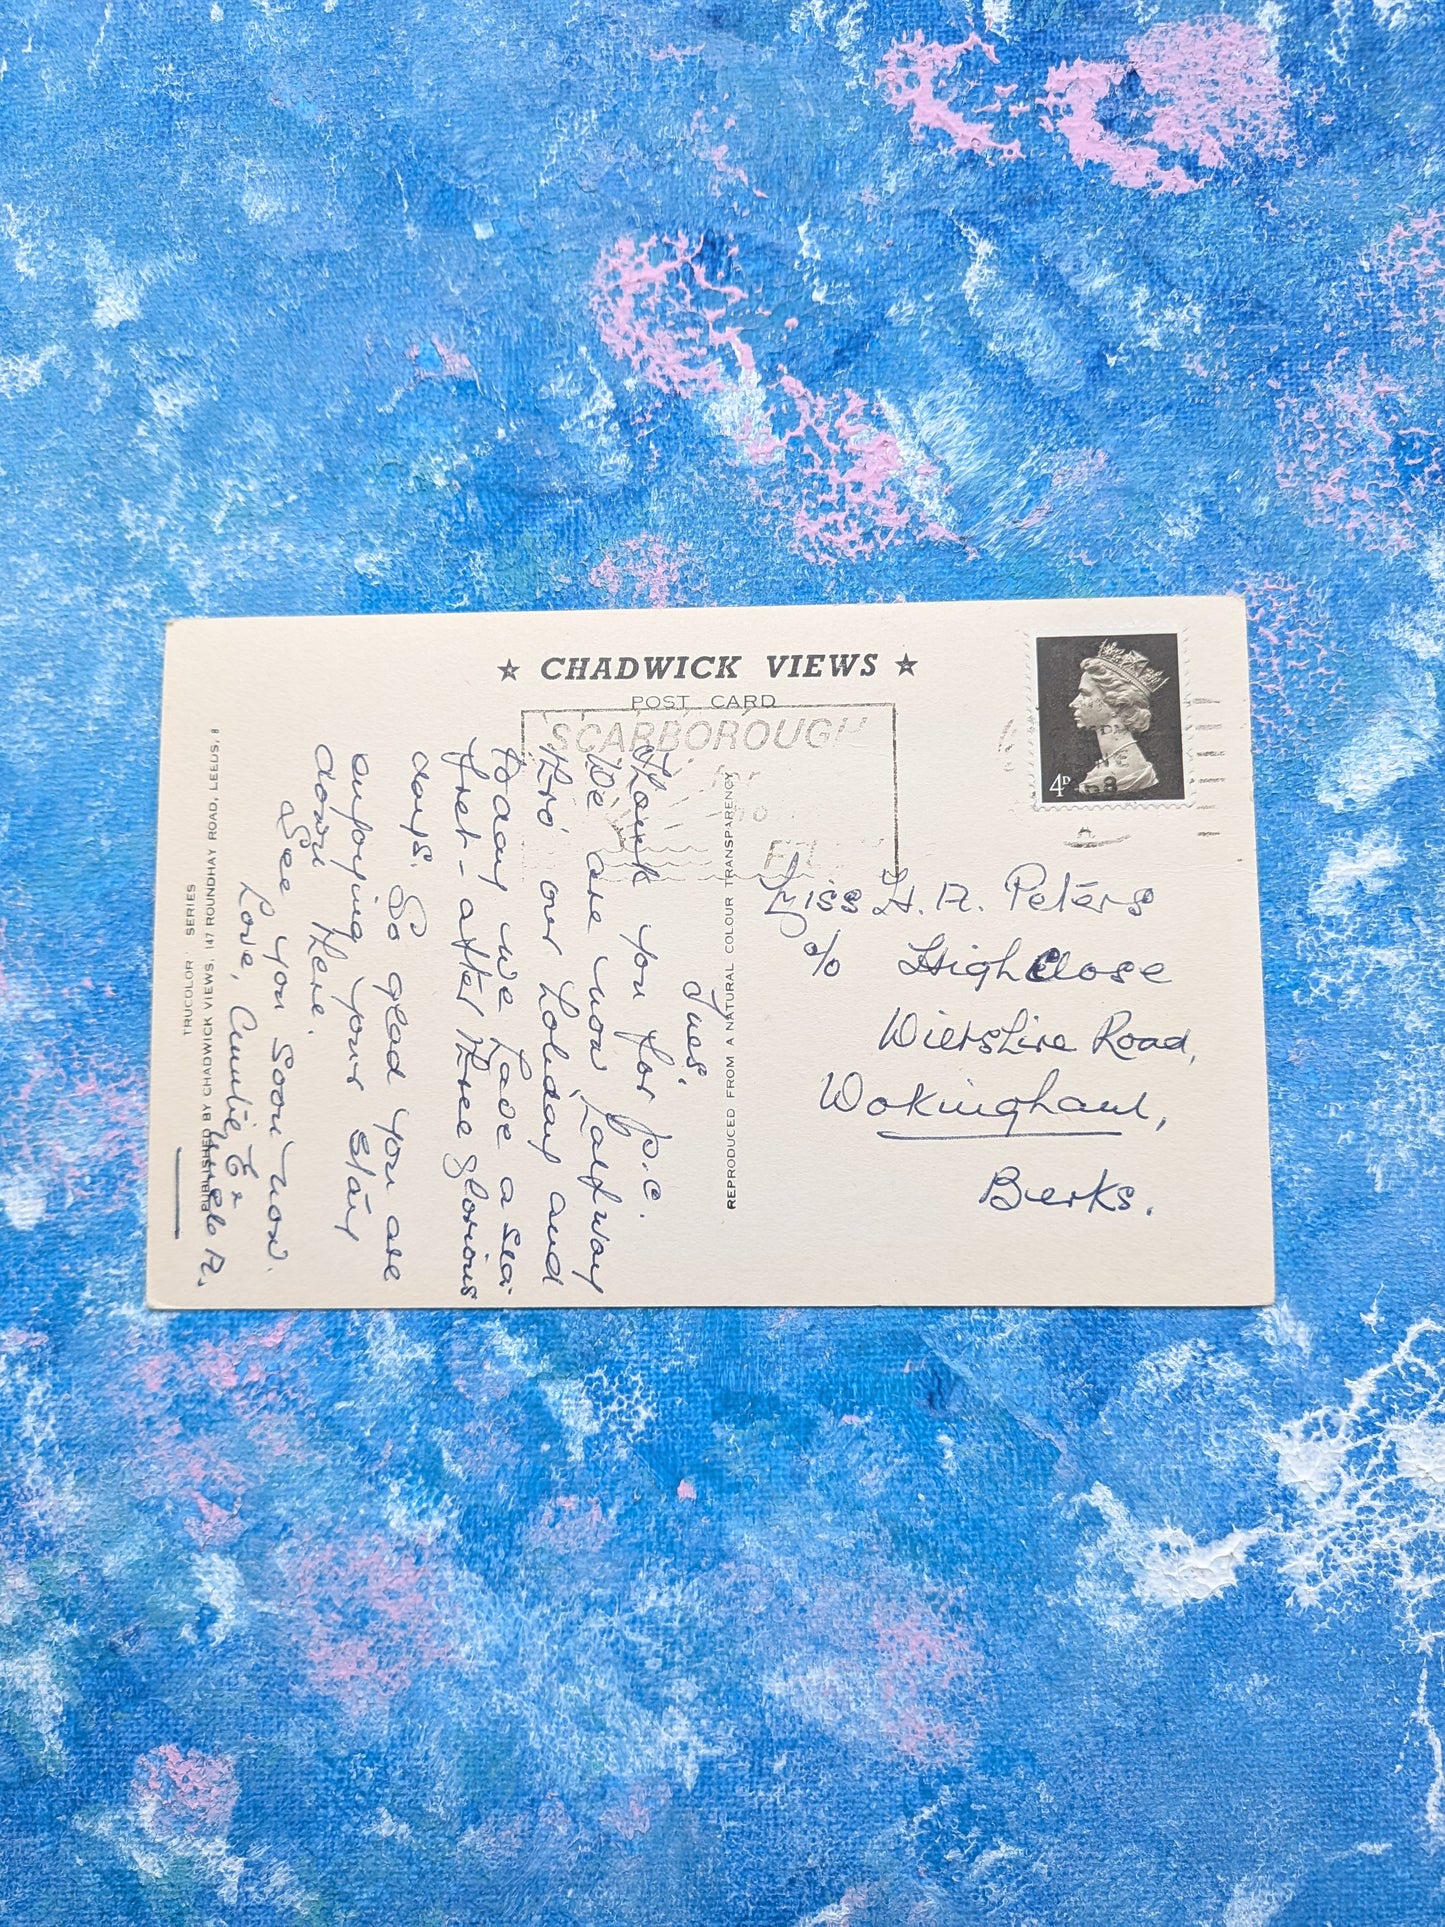 ★ CHADWICK VIEWS ★
POST CARD
SCARBOROUGH
for
4D
Tues.
Thank you for p.c.
We are now halfway
thro' our holiday and
today we have a sea
fret - after three glorious
days. So glad you are
enjoying your stay
down there.
See you soon now.
Love, Auntie E &
Uncle A.
Miss H. A. Peters
c/o Highclose
Wiltshire Road,
Wokingham,
Berks.
REPRODUCED FROM A NATURAL COLOUR TRANSPARENCY
TRUCOLOR SERIES
PUBLISHED BY CHADWICK VIEWS, 147 ROUNDHAY ROAD, LEEDS, 8